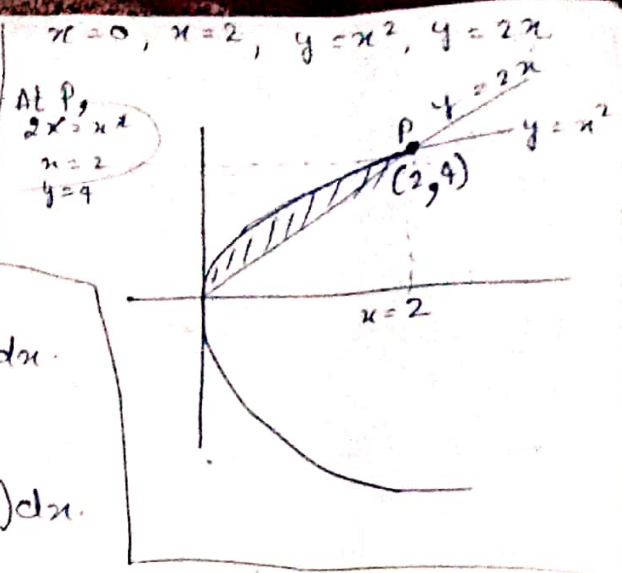 x = 0, x = 2, y = x², y = 2x
At P,
2x = x²
x = 2
y = 4
y = 2x
P
y = x²
(2,4)
x = 2
dx.
)dx.